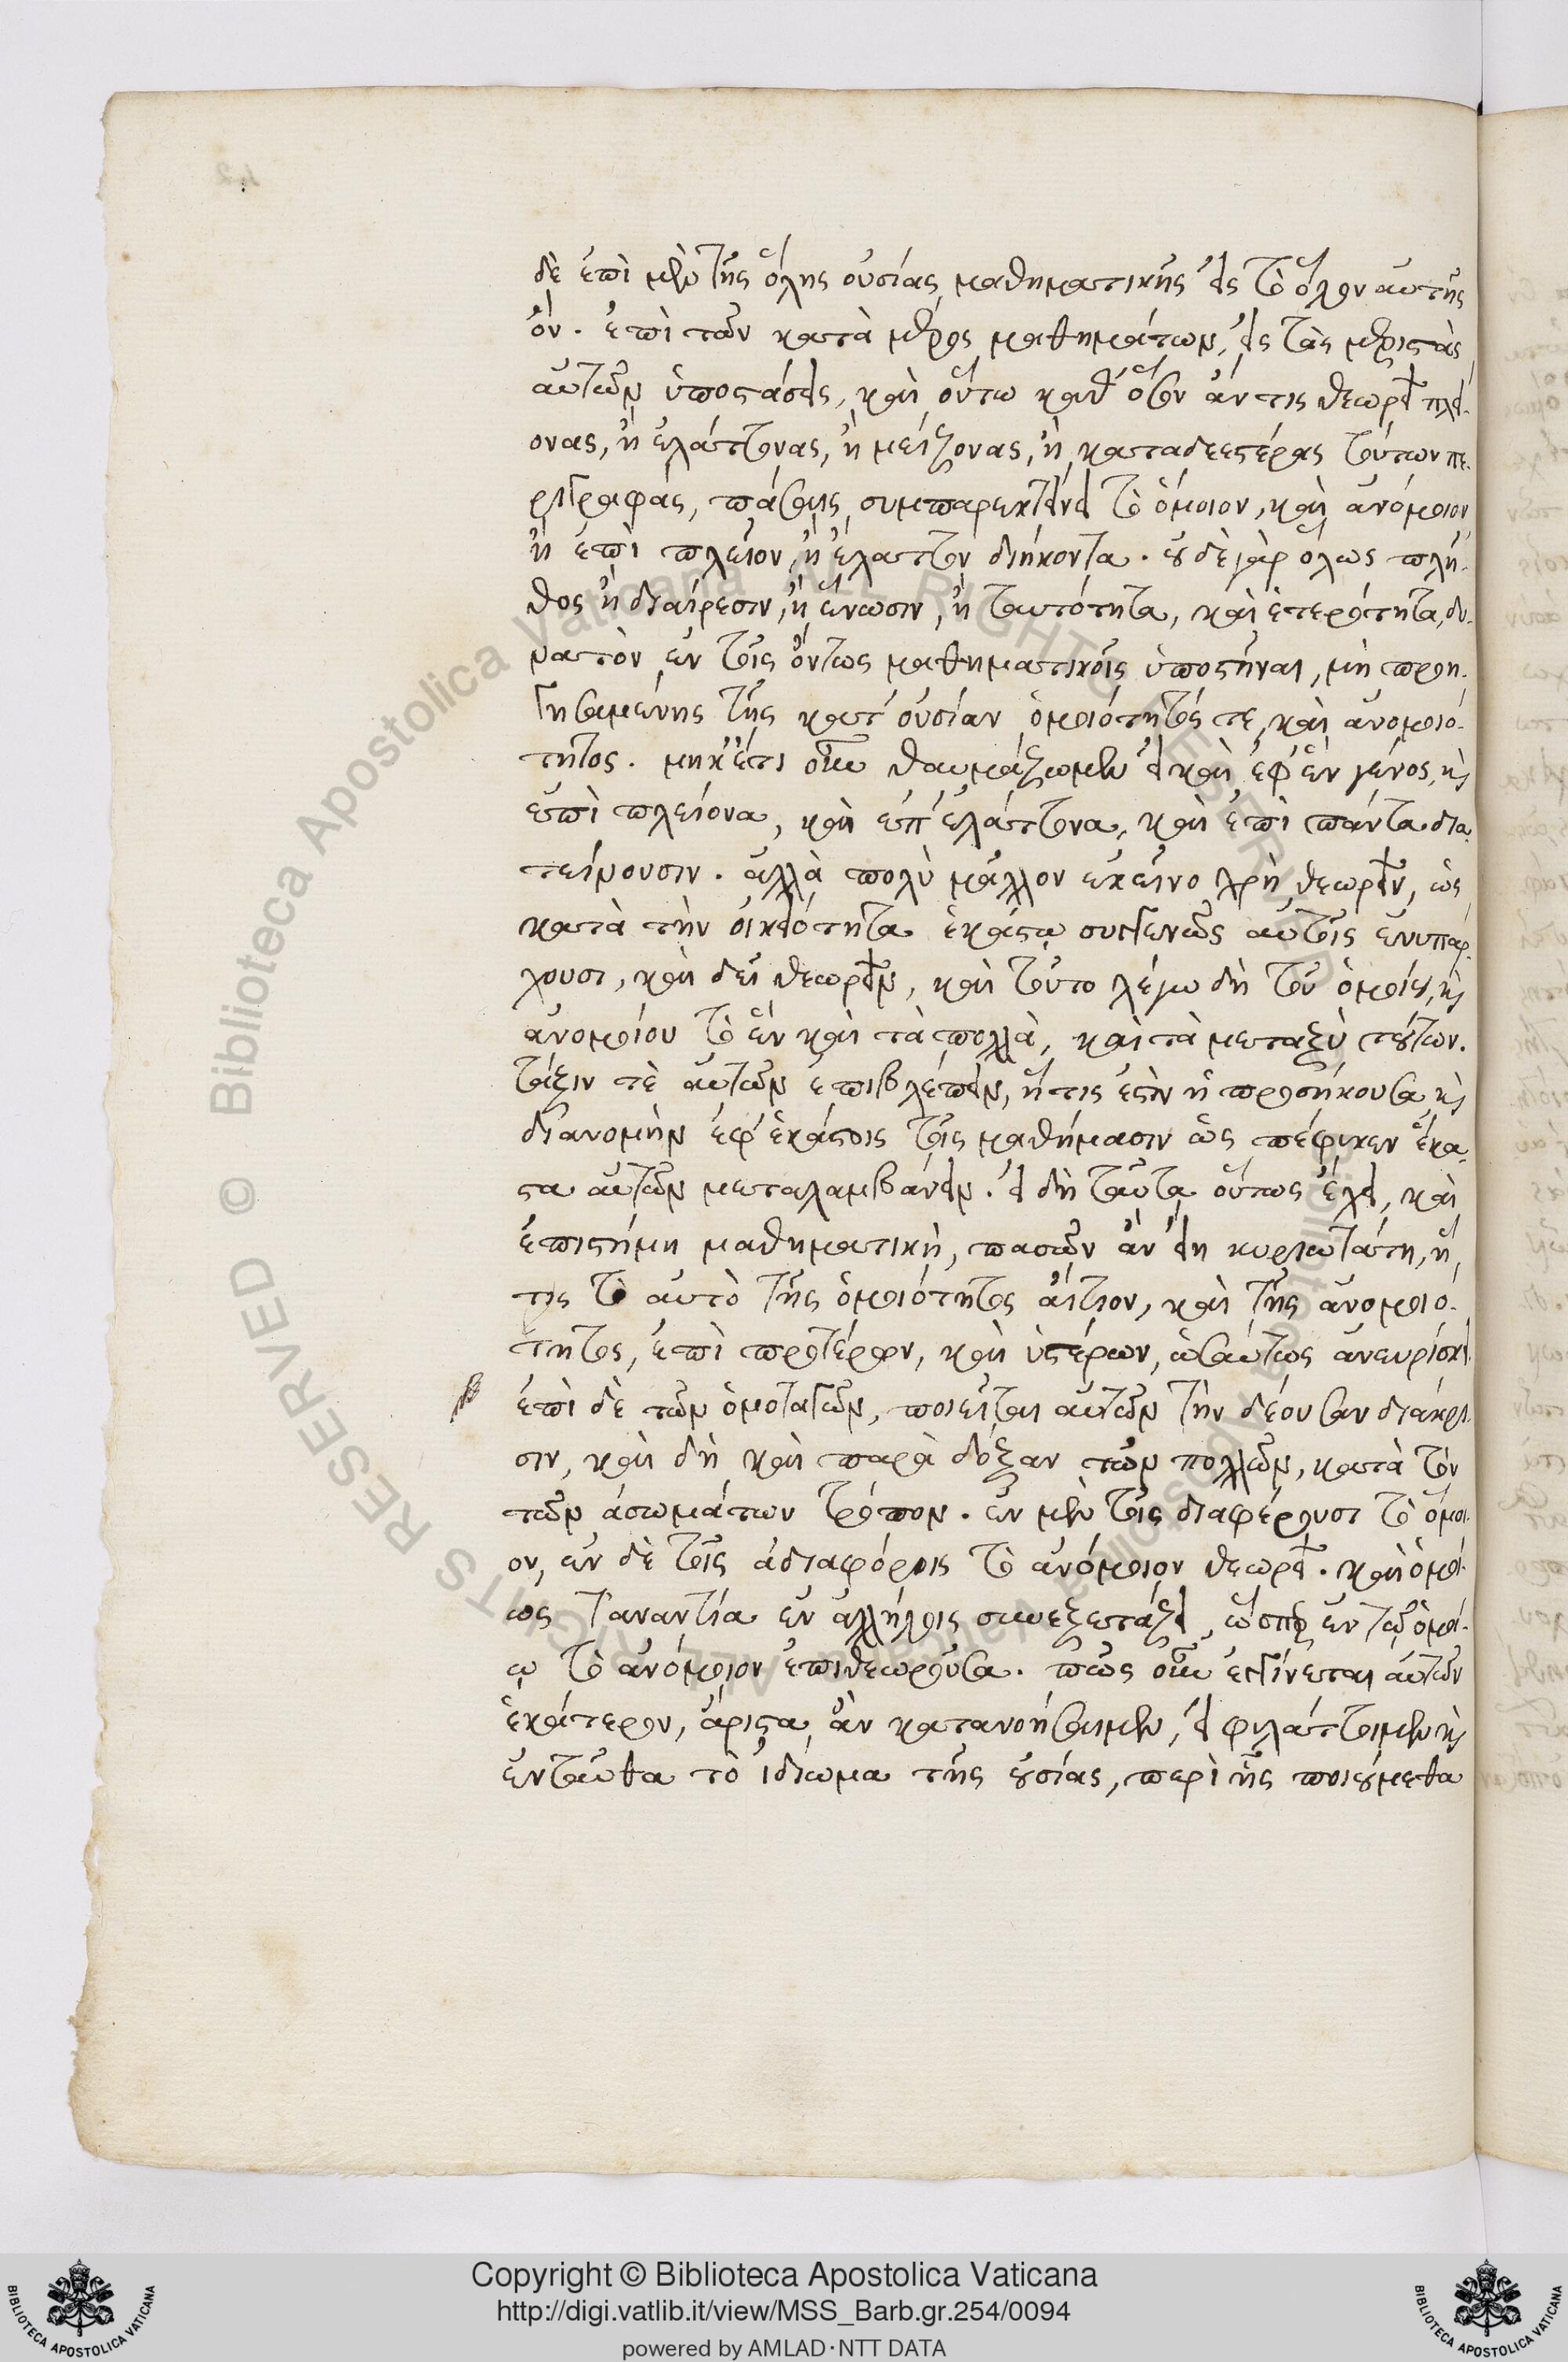 δὲ ἐπὶ μὲν τῆς ὅλης οὐσίας μαθηματικῆς εἰς τὸ ὅλον αὐτῆς
ὄν. ἐπὶ τῶν κατὰ μέρος μαθημάτων, εἰς τὰς μεριστὰς
αὐτῶν ὑποστάσεις, καὶ οὕτω καθ' ὅσον ἄν τις θεωρεῖ πλεί-
ονας, ἢ ἐλάττονας, ἢ μείζονας, ἢ καταδεεστέρας τούτων πε-
ριγραφάς, πάσαις συμπαρεκτείνει τὸ ὅμοιον, καὶ ἀνόμοιον
ἢ ἐπὶ πλεῖον, ἢ ἔλαττον διήκοντα. οὐδὲ γὰρ ὅλως πλῆ-
θος ἢ διαίρεσιν, ἢ ἕνωσιν, ἢ ταυτότητα, καὶ ἑτερότητα, δυ-
νατὸν ἐν τοῖς ὄντως μαθηματικοῖς ὑποστῆναι, μὴ προη-
γησαμένης τῆς κατ' οὐσίαν ὁμοιότητός τε, καὶ ἀνομοιό-
τητος. μηκέτι οὖν θαυμάζωμεν εἰ καὶ ἐφ' ἓν γένος, καὶ
ἐπὶ πλείονα, καὶ ἐπ' ἐλάττονα, καὶ ἐπὶ πάντα δια-
τείνουσιν. ἀλλὰ πολὺ μᾶλλον ἐκεῖνο χρὴ θεωρεῖν, ὡς
κατὰ τὴν οἰκειότητα ἑκάστῳ συγγενῶς αὐτοῖς ἐνυπάρ-
χουσι, καὶ δεῖ θεωρεῖν, καὶ τοῦτο λέγω δὴ τοῦ ὁμοίου, καὶ
ἀνομοίου τὸ ἓν καὶ τὰ πολλὰ, καὶ τὰ μεταξὺ τούτων.
τάξιν τὲ αὐτῶν ἐπιβλέπειν, ἥτις ἐστὶν ἡ προσήκουσα καὶ
διανομὴν ἐφ' ἑκάστοις τοῖς μαθήμασιν ὡς πέφυκεν ἕκα-
στα αὐτῶν μεταλαμβάνειν. εἰ δὴ ταῦτα οὕτως ἔχει, καὶ
ἐπιστήμη μαθηματικὴ, πασῶν ἂν εἴη κυριωτάτη, ἥ
τις τὸ αὐτὸ τῆς ὁμοιότητος αἴτιον, καὶ τῆς ἀνομοιό-
τητος, ἐπὶ προτέρων, καὶ ὑστέρων, ὡσαύτως ἀνευρίσκει
ἐπὶ δὲ τῶν ὁμοταγῶν, ποιεῖται αὐτῶν τὴν δέουσαν διάκρι-
σιν, καὶ δὴ καὶ παρὰ δόξαν τῶν πολλῶν, κατὰ τὸν
τῶν ἀσωμάτων τρόπον. ἐν μὲν τοῖς διαφέρουσι τὸ ὅμοι-
ον, ἐν δὲ τοῖς ἀδιαφόροις τὸ ἀνόμοιον θεωρεῖ. καὶ ὁμοί-
ως τἀναντία ἐν ἀλλήλοις συνεξετάζει, ὥσπερ ἐν τῷ ὁμοί-
ῳ τὸ ἀνόμοιον ἐπιθεωροῦσα. πῶς οὖν ἐγγίνεται αὐτῶν
ἑκάτερον, ἄριστα ἂν κατανοήσαιμεν, εἰ φυλάττοιμεν καὶ
ἐνταῦθα τὸ ἰδίωμα τῆς οὐσίας, περὶ ἧς ποιούμεθα
Copyright © Biblioteca Apostolica Vaticana
http://digi.vatlib.it/view/MSS_Barb.gr.254/0094
powered by AMLAD·NTT DATA